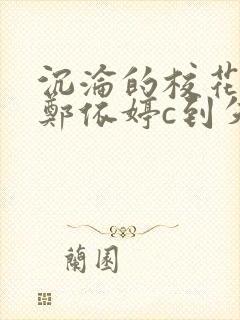 沉淪的校花
鄭依婷c到
蘭園